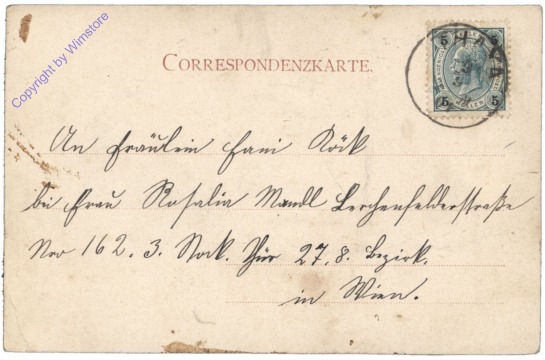 Copyright by Wimstore
CORRESPONDENZKARTE.
5 5
5 5
An Fräulein Fani Köck
bei Frau Rosalia Mandl Lerchenfelderstraße
Nro 162. 3. Stock. Thür 27. 8. Bezirk.
in Wien.